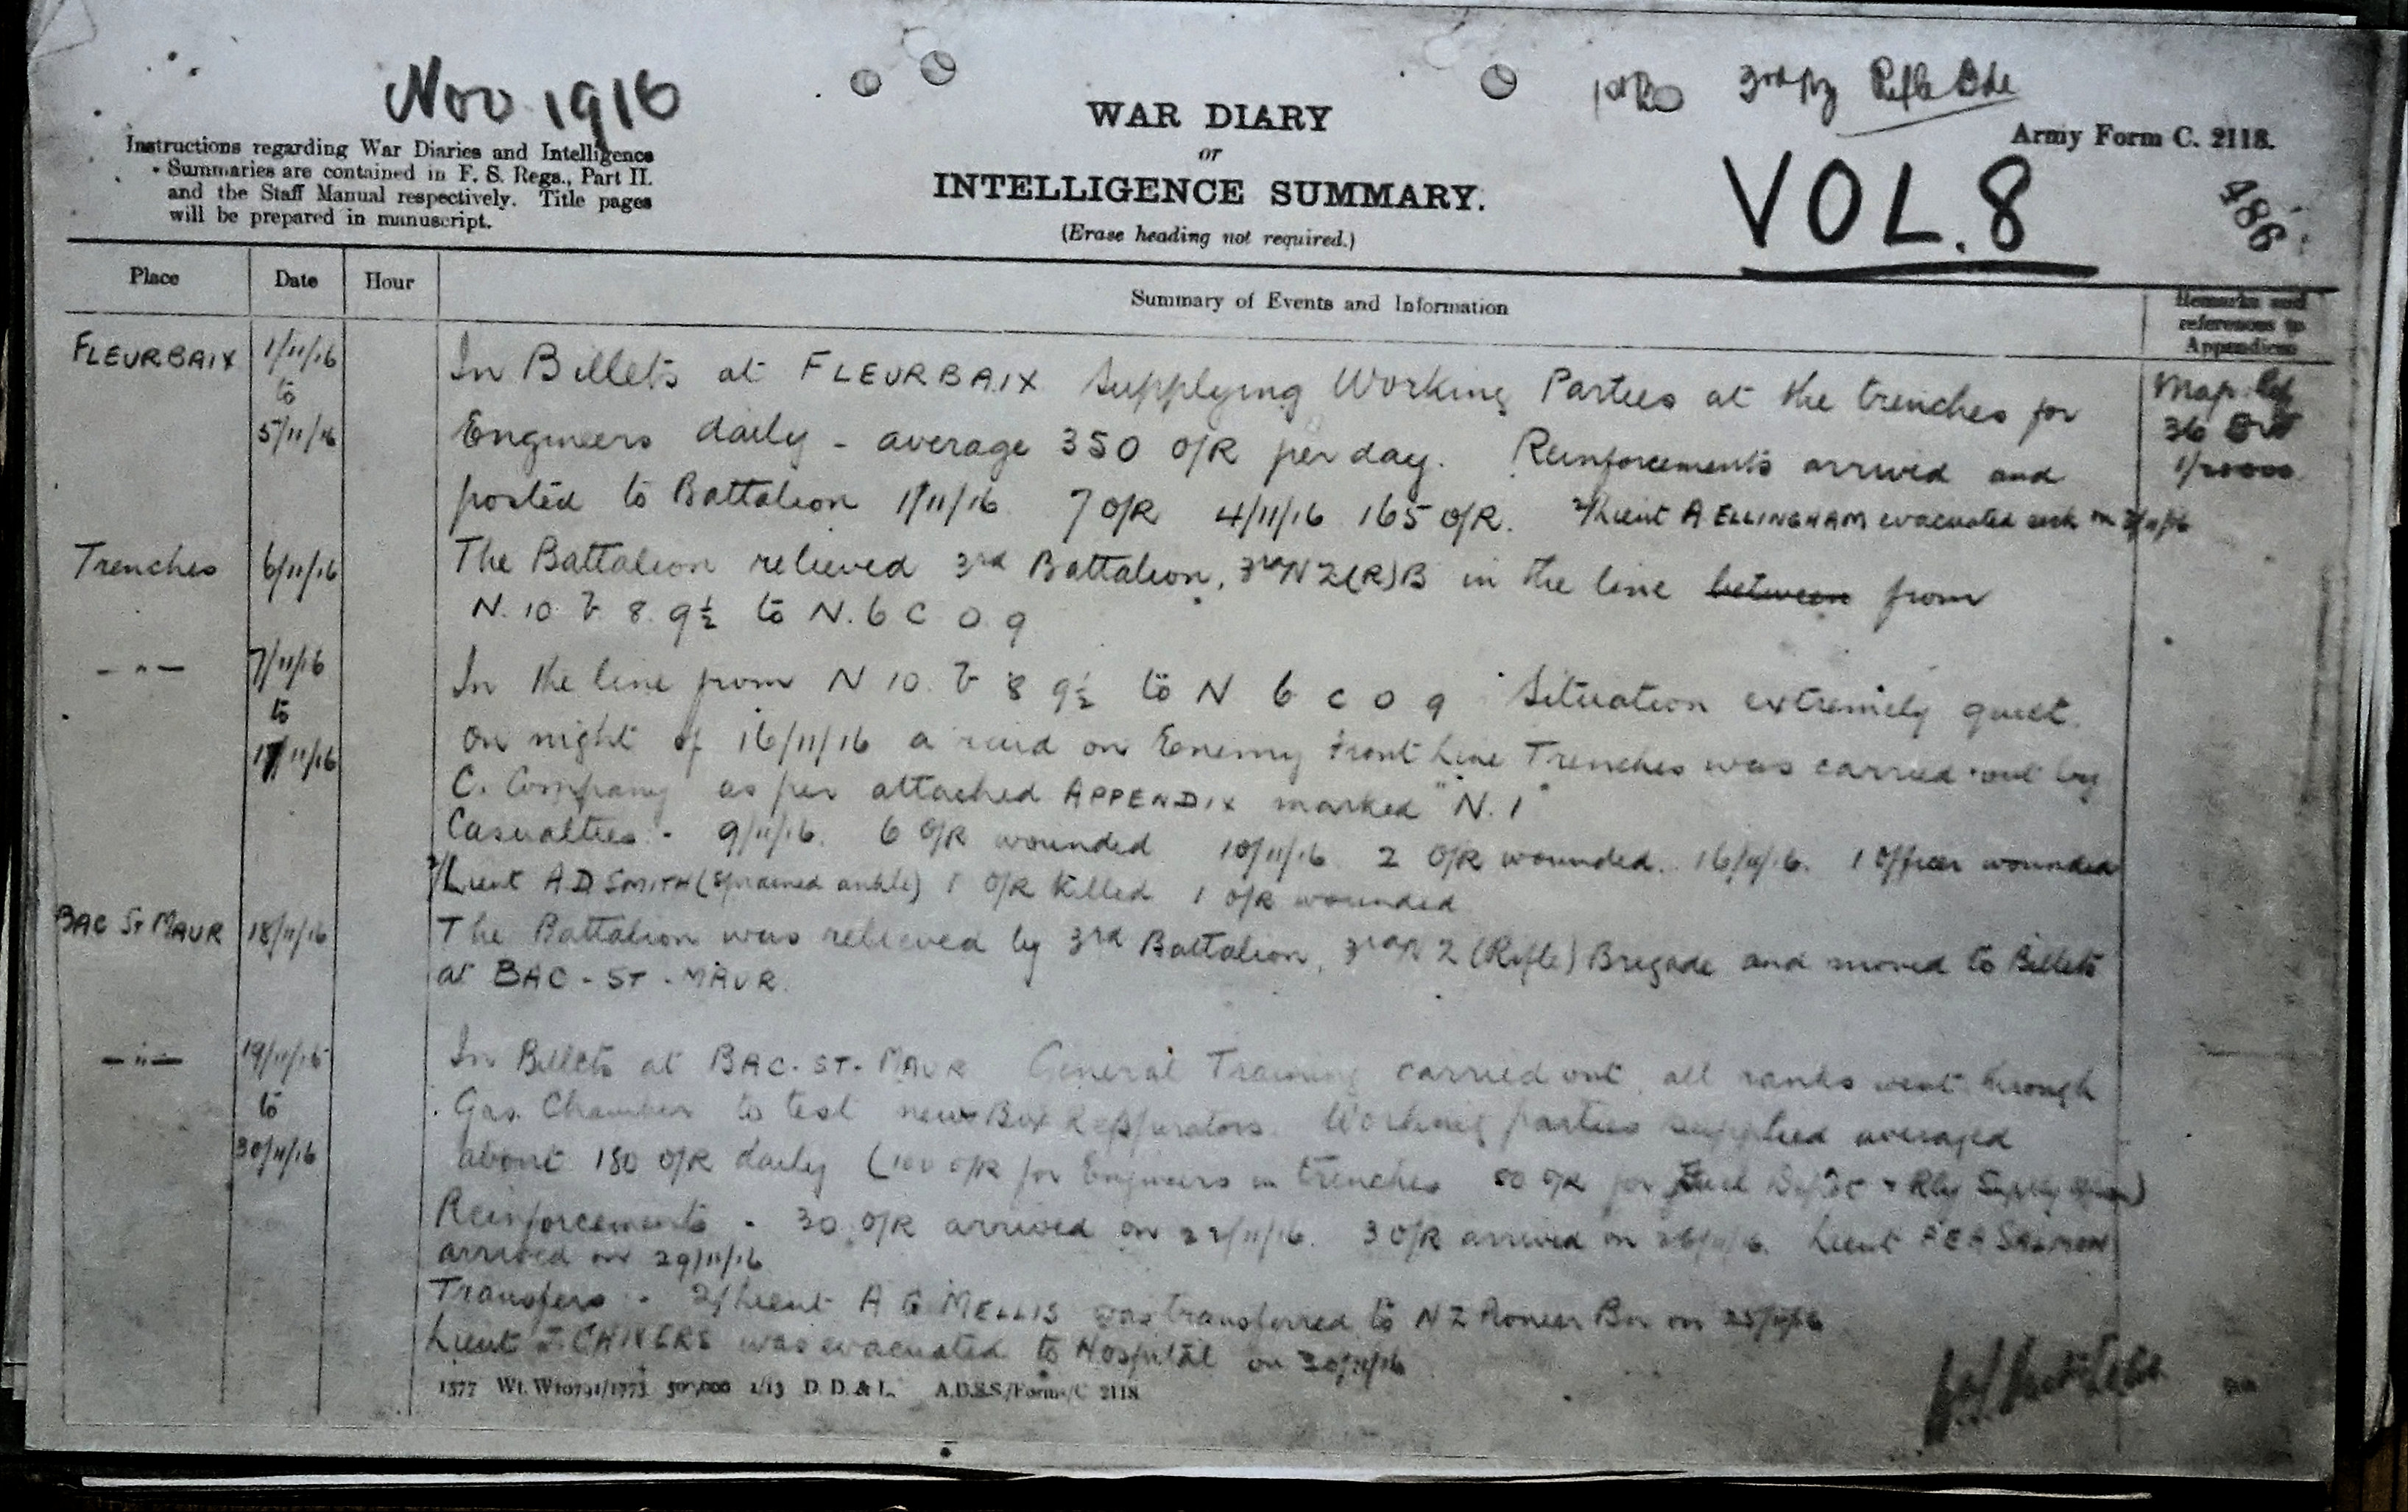 Nov 1916
3rd NZ Rifle Bde
WAR DIARY
or
INTELLIGENCE SUMMARY.
(Erase heading not required.)
Army Form C. 2118.
VOL. 8
486
Instructions regarding War Diaries and Intelligence
Summaries are contained in F. S. Regs., Part II.
and the Staff Manual respectively. Title pages
will be prepared in manuscript.
Place Date Hour Summary of Events and Information Remarks and references to Appendices
FLEURBAIX 1/11/16 In Billets at FLEURBAIX Supplying Working Parties at the trenches for Map Ref
to
5/11/16 Engineers daily - average 350 O/R per day. Reinforcements arrived and 36
posted to Battalion 1/11/16 7 O/R 4/11/16 165 O/R. 2/Lieut A ELLINGHAM evacuated sick on
Trenches 6/11/16 The Battalion relieved 3rd Battalion, 3rd NZ(R)B in the line between from
N. 10. b 8. 9½ to N. 6 C 0 9
- " - 7/11/16 In the line from N 10. b 8 9½ to N 6 c 0 9 Situation extremely quiet.
to
17/11/16 On night of 16/11/16 a raid on Enemy Front Line Trenches was carried out by
C. Company as per attached APPENDIX marked "N. 1"
Casualties - 9/11/16. 6 O/R wounded 10/11/16 2 O/R wounded. 16/11/16. 1 Officer wounded
2/Lieut A.D SMITH (sprained ankle) 1 O/R Killed 1 O/R wounded
BAC ST MAUR 18/11/16 The Battalion was relieved by 3rd Battalion, 3rd N Z (Rifle) Brigade and moved to Billets
at BAC - ST - MAUR.
- " - 19/11/16 In Billets at BAC - ST - MAUR General Training carried out, all ranks went through
to Gas Chamber to test new Box Respirators. Working parties supplied averaged
30/11/16 about 180 O/R daily (100 O/R for Engineers in trenches 80 O/R for Fuel & Rly Supply
Reinforcements - 30 O/R arrived on 3 O/R arrived on Lieut SALMON
arrived on 29/11/16
Transfers - 2/Lieut A G MELLIS was transferred to N Z Pioneer Bn on
Lieut CHIVERS was evacuated to Hospital on
1577 Wt. W10791/1773 500,000 1/15 D. D. & L. A.D.S.S./Forms/C 2118